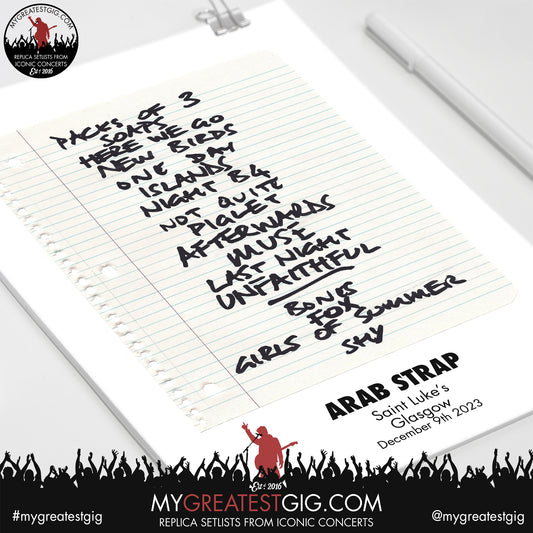 MYGREATESTGIG.COM
REPLICA SETLISTS FROM
ICONIC CONCERTS
Est 2016
PACKS OF 3
SOAPS
HERE WE GO
NEW BIRDS
ONE DAY
ISLANDS
NIGHT B4
NOT QUITE
PIGLET
AFTERWARDS
MUSE
LAST NIGHT
UNFAITHFUL
BONES
FOX
GIRLS OF SUMMER
SHY
ARAB STRAP
Saint Luke's
Glasgow
December 9th 2023
Est 2016
MYGREATESTGIG.COM
REPLICA SETLISTS FROM ICONIC CONCERTS
#mygreatestgig
@mygreatestgig